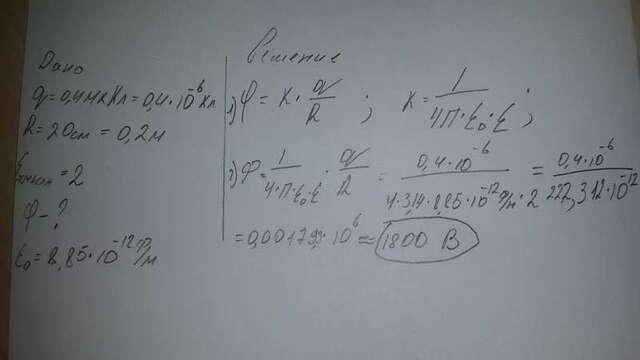 Дано
q = 0,4 мкКл = 0,4·10⁻⁶ Кл
R = 20см = 0,2м
= 2
φ - ?
ε₀ = 8,85·10⁻¹² Ф/м
Решение
1) φ = K · q/R ; K = 1/(4π·ε₀·ε) ;
2) φ = 1/(4·π·ε₀·ε) · q/R = 0,4·10⁻⁶/(4·3,14·8,85·10⁻¹² Ф/м·2) = 0,4·10⁻⁶/(222,312·10⁻¹²)
= 0,001799·10⁶ ≈ 1800 В